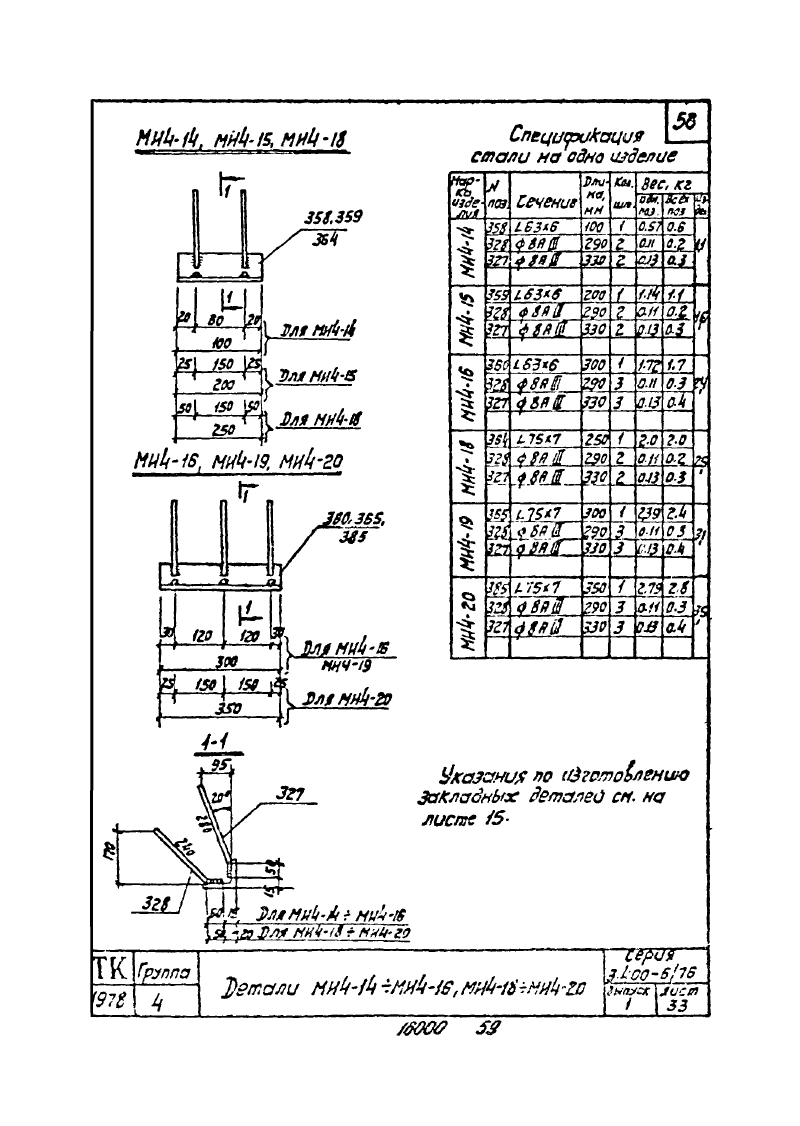 58
МН4-14, МН4-15, МН4-18
1
358,359
364
1
20 80 20
100
Для МН4-14
25 150 25
200
Для МН4-15
50 150 50
250
Для МН4-18
МН4-16, МН4-19, МН4-20
1
360,365,
385
1
30 120 120 30
300
Для МН4-16
МН4-19
25 150 150 25
350
Для МН4-20
1-1
95
20°
280
327
240
170
328
50
15
50 15 Для МН4-14 ÷ МН4-16
50 20 Для МН4-18 ÷ МН4-20
Спецификация
стали на одно изделие
Марка изделия N поз. Сечение Длина, мм Кол. шт. Вес, кг
одн. поз. всех поз. изд.
МН4-14
358 L63×6 100 1 0.57 0.6
328 ф8АIII 290 2 0.11 0.2 1,1
327 ф8АIII 330 2 0.13 0.3
МН4-15
359 L63×6 200 1 1.14 1.1
328 ф8АIII 290 2 0.11 0.2 1,6
327 ф8АIII 330 2 0.13 0.3
МН4-16
360 L63×6 300 1 1.72 1.7
328 ф8АIII 290 3 0.11 0.3 2,4
327 ф8АIII 330 3 0.13 0.4
МН4-18
364 L75×7 250 1 2.0 2.0
328 ф8АIII 290 2 0.11 0.2 2,5
327 ф8АIII 330 2 0.13 0.3
МН4-19
365 L75×7 300 1 2.39 2.4
328 ф8АIII 290 3 0.11 0.3 3,1
327 ф8АIII 330 3 0.13 0.4
МН4-20
385 L75×7 350 1 2.79 2.8
328 ф8АIII 290 3 0.11 0.3 3,5
327 ф8АIII 330 3 0.13 0.4
Указания по изготовлению
закладных деталей см. на
листе 15.
ТК
1978
Группа
4
Детали МН4-14÷МН4-16, МН4-18÷МН4-20
Серия
3.400-6/76
Выпуск
1
Лист
33
16000 59